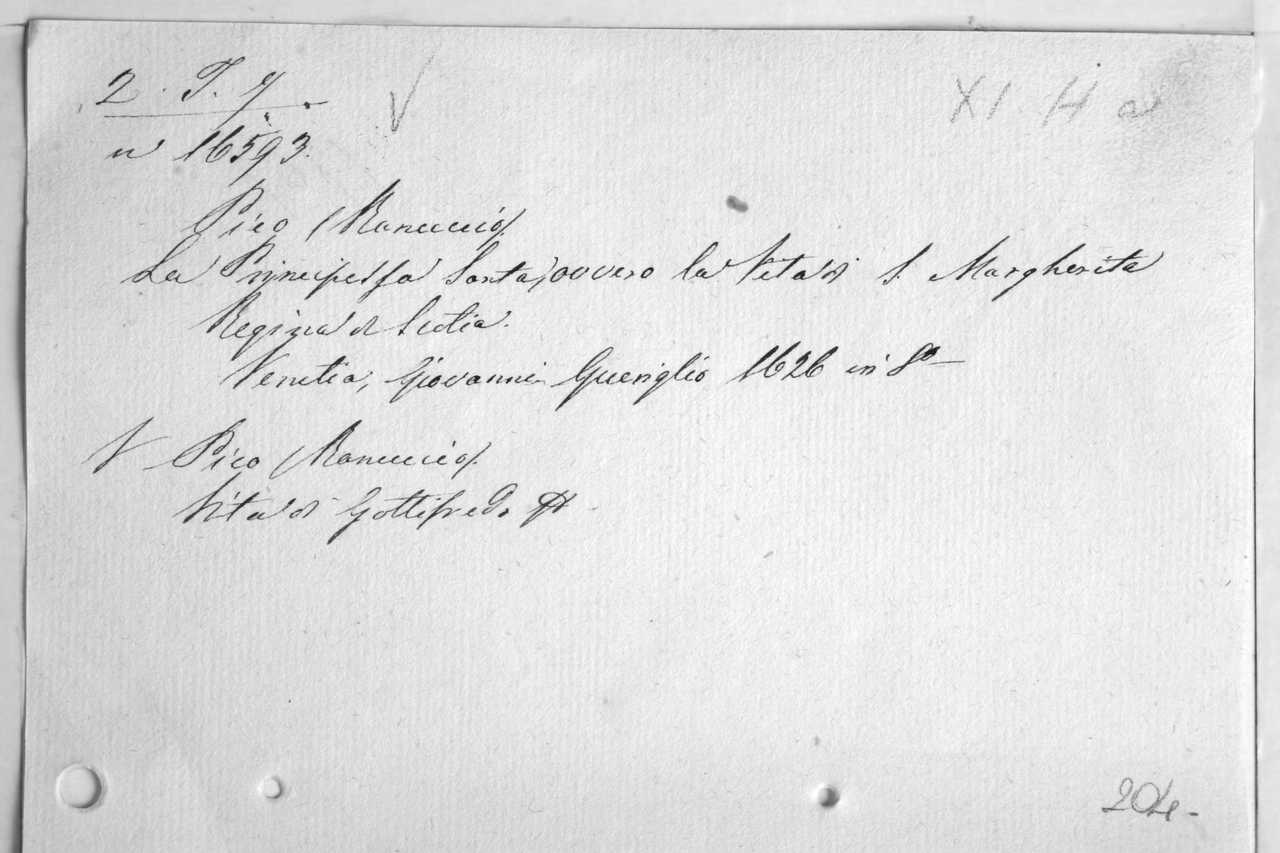 2. T. 7.
n 16593.
XI. H a
Pico (Ranuccio).
La Principessa Santa, ovvero la Vita di S. Margherita
Regina di Scotia.
Venetia, Giovanni Gueriglio 1626 in 8º
V Pico (Ranuccio).
Vita di Gottifredo
204-